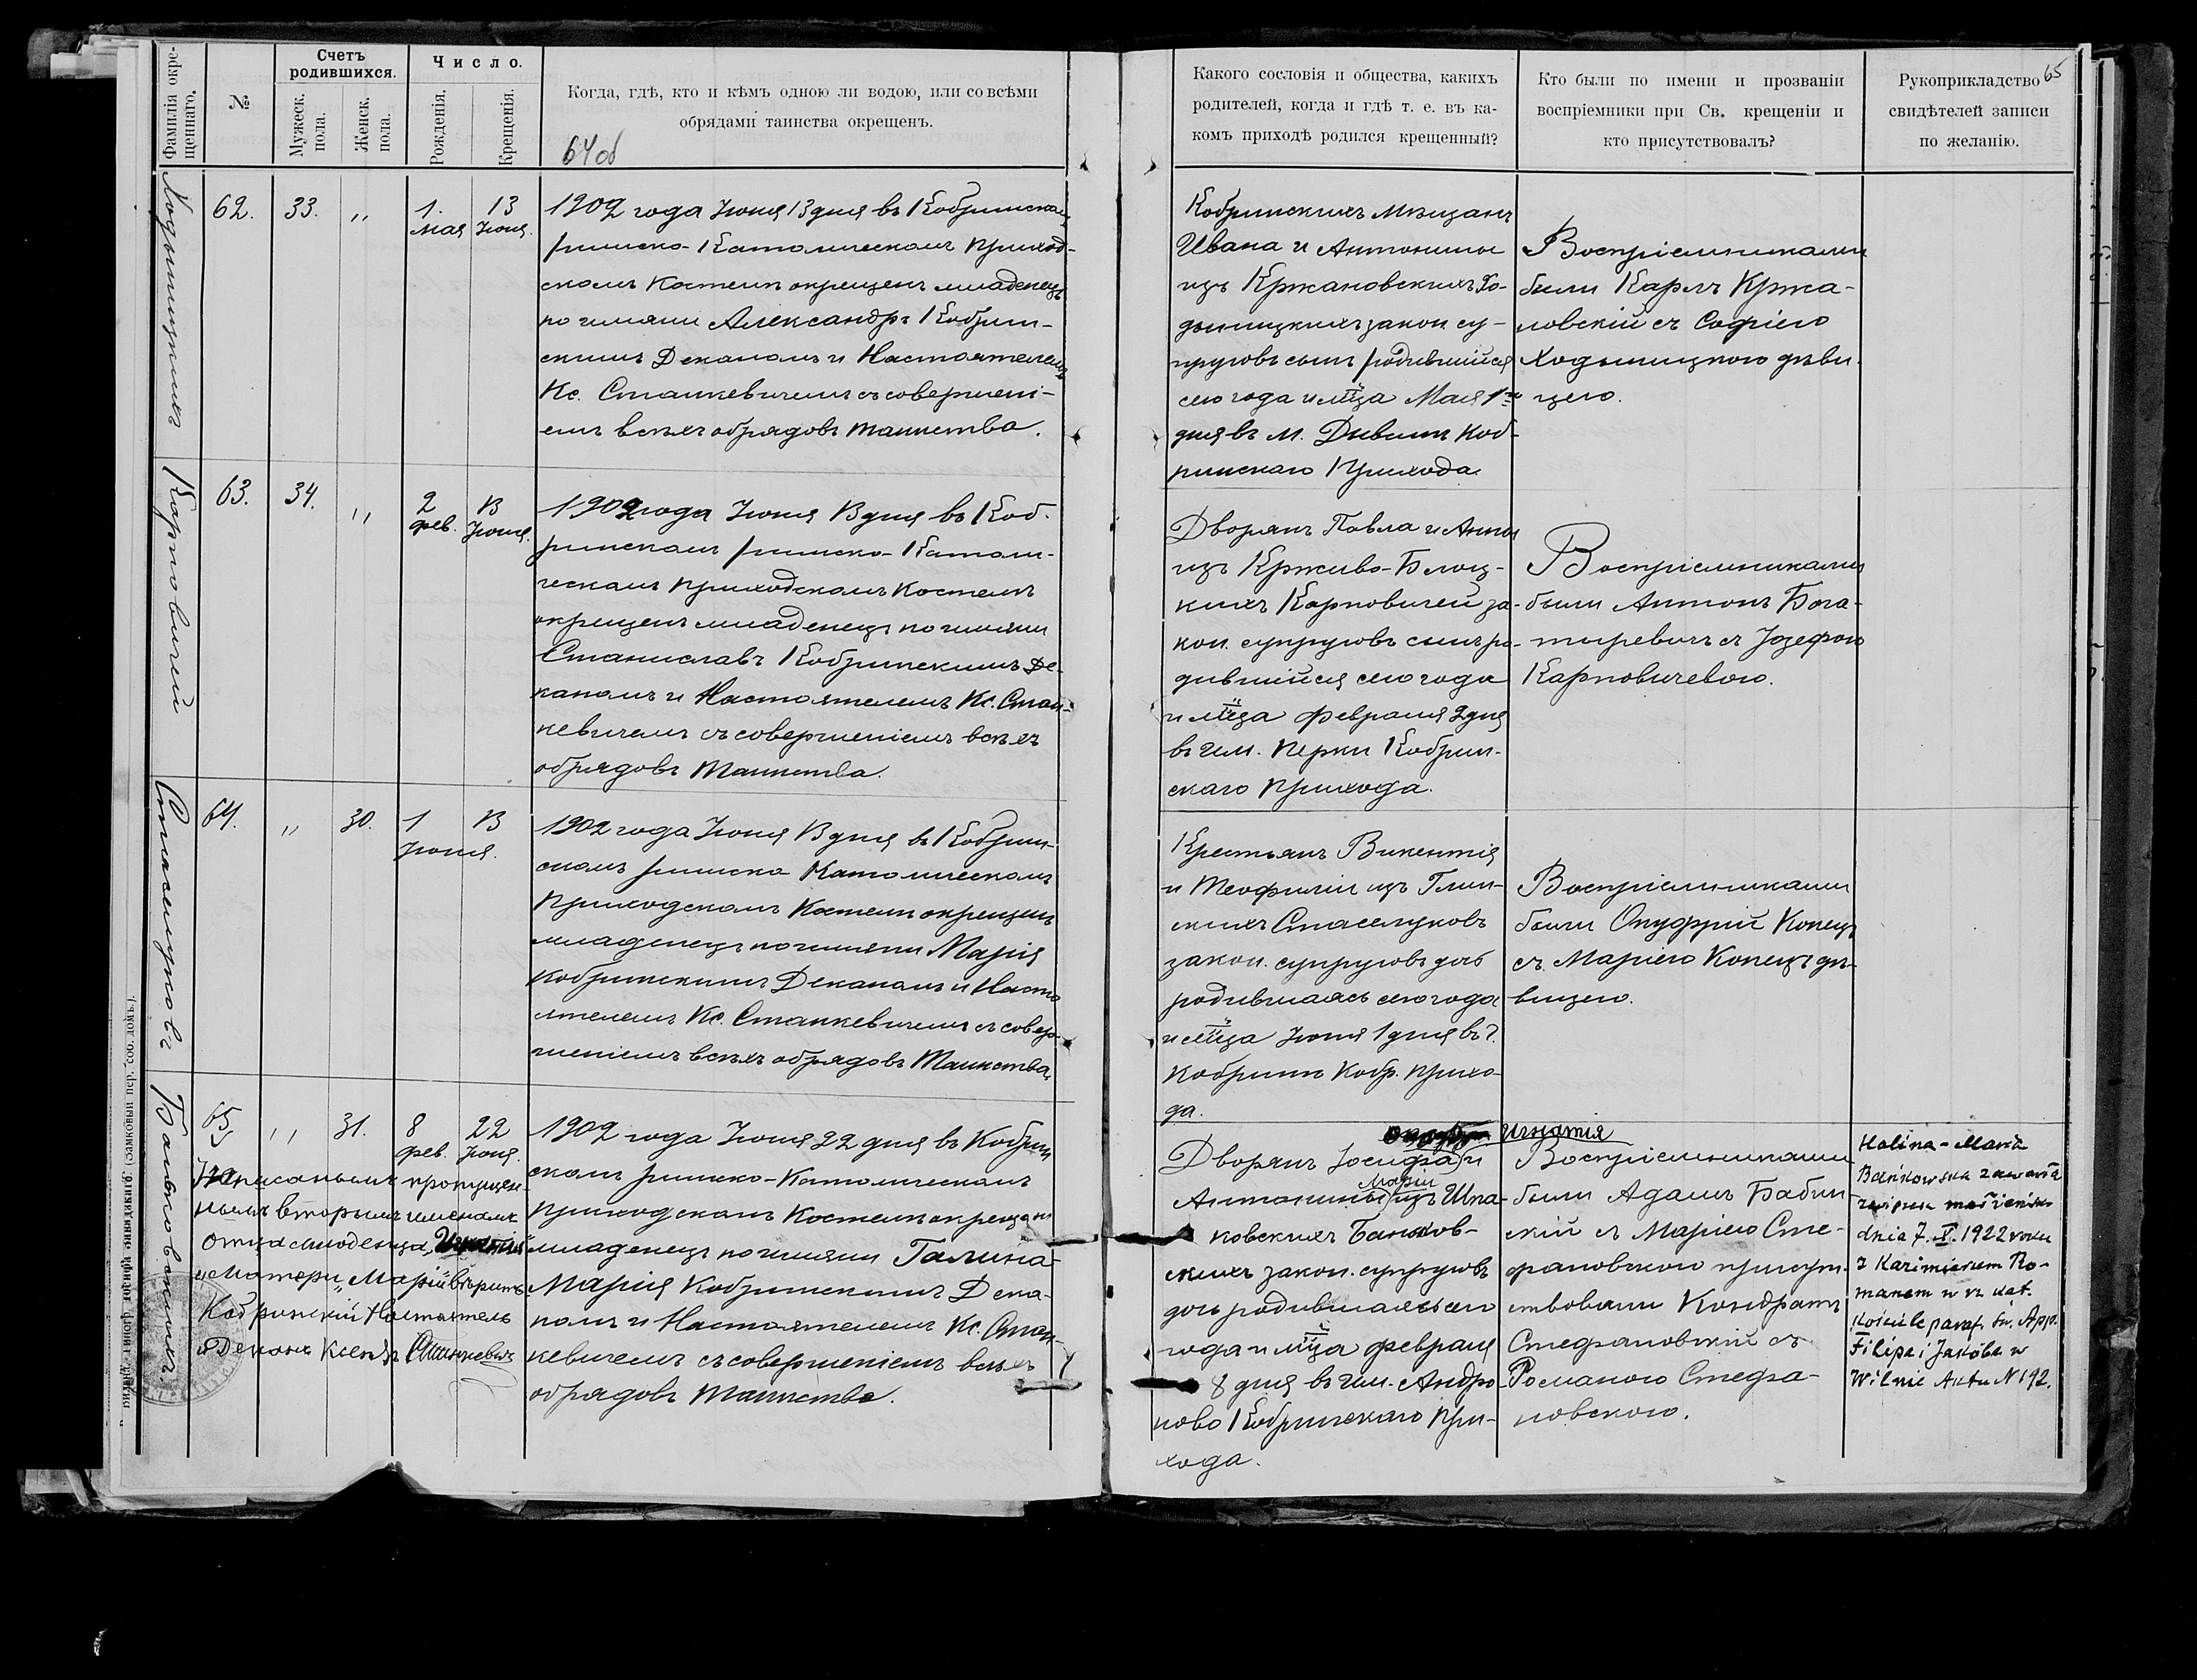 Фамилія окре-
щеннаго.
№
Счетъ
родившихся.
Мужеск.
пола.
Женск.
пола.
Число.
Рожденія.
Крещенія.
Когда, гдѣ, кто и кѣмъ одною ли водою, или со всѣми
обрядами таинства окрещенъ.
64 об
Ходыницкихъ
62.
33.
"
1.
мая
13
Іюня.
1902 года Іюня 13 дня въ Кобринскомъ
римско-Католическомъ приход-
скомъ Костелѣ окрещенъ младенецъ
по имяни Александръ Кобрин-
скимъ Деканомъ и Настоятелемъ
Кс. Станкевичемъ съ совершені-
емъ всѣхъ обрядовъ таинства.
Карповичей
63.
34.
"
2
фев.
13
Іюня.
1902 года Іюня 13 дня въ Коб-
ринскомъ римско-Католи-
ческомъ приходскомъ Костелѣ
окрещенъ младенецъ по имяни
Станиславъ Кобринскимъ Де-
каномъ и Настоятелемъ Кс. Стан-
кевичемъ съ совершеніемъ всѣхъ
обрядовъ Таинства.
Стасюковъ
64.
"
30.
1
Іюня.
13
1902 года Іюня 13 дня въ Кобрин-
скомъ римско Католическомъ
Приходскомъ Костелѣ окрещенъ
младенецъ по имяни Марія
Кобринскимъ Деканомъ и Насто
ятелемъ Кс. Станкевичемъ съ совер-
шеніемъ всѣхъ обрядовъ Таинства.
Баньковскихъ.
65
"
31.
8
фев.
22
Іюня.
1902 года Іюня 22 дня въ Кобрин
скомъ римско-Католическомъ
приходскомъ Костелѣ окрещенъ
младенецъ по имяни Галина-
Марія Кобринскимъ Дека-
номъ и Настоятелемъ Кс. Стан-
кевичемъ съ совершеніемъ всѣхъ
обрядовъ Таинства.
пропущен-
нымъ вторымъ именамъ
отца младенца
и Матери "Марій" вѣрить
Кобринскій Настоятель
и Деканъ Ксендзъ Станкевичъ
65
Какого сословія и общества, какихъ
родителей, когда и гдѣ т. е. въ ка-
комъ приходѣ родился крещенный?
Кто были по имени и прозваніи
воспріемники при Св. крещеніи и
кто присутствовалъ?
Рукоприкладство
свидѣтелей записи
по желанію.
Кобринскихъ мѣщанъ
Ивана и Антонины
изъ Кржановскихъ Хо-
дыницкихъ закон. су-
пруговъ сынъ родившійся
сего года и мца Мая 1го
дня въ м. Дивинѣ Коб-
ринскаго Прихода.
Воспріемниками
были Карлъ Кржа-
новскій съ Софіею
Ходыницкою дѣви-
цею.
Дворянъ Павла и Анны
изъ Крживо-Блоц-
кихъ Карповичей за-
кон. супруговъ сынъ ро-
дившійся сего года
и мца февраля 2 дня
въ им. Перки Кобрин-
скаго прихода.
Воспріемниками
были Антонъ Бога-
тыревичъ съ Іозефою
Карповичевою.
Крестьянъ Викентія
и Теофиліи изъ Глин-
скихъ Стасюковъ
закон. супруговъ дочь
родившаясь сего года
и мца Іюня 1 дня въ г.
Кобринѣ Кобр. прихо-
да.
Воспріемниками
были Онуфрий Конецъ
съ Маріею Конецъ дѣ-
вицею.
Игнатія
Дворянъ Іосифа и
Маріи
Антонины изъ Шпа-
ковскихъ Баньков-
скихъ закон. супруговъ
дочь родившаясь сего
года и мца февраля
8 дня въ им. Андро
ново Кобринскаго при-
хода.
Воспріемниками
были Адамъ Бабин
скій съ Маріею Сте-
фановскою присут-
ствовали Кондратъ
Стефановскій съ
Романою Стефа-
новскою.
Halina-Maria
Bańkowska zawarła
związek małżeński
dnia 7.X.1922 roku
z Kazimierzem Ro-
manem w rz. kat.
Kościele paraf. św. App.
Filipa i Jakóba w
Wilnie Aktu N 192.